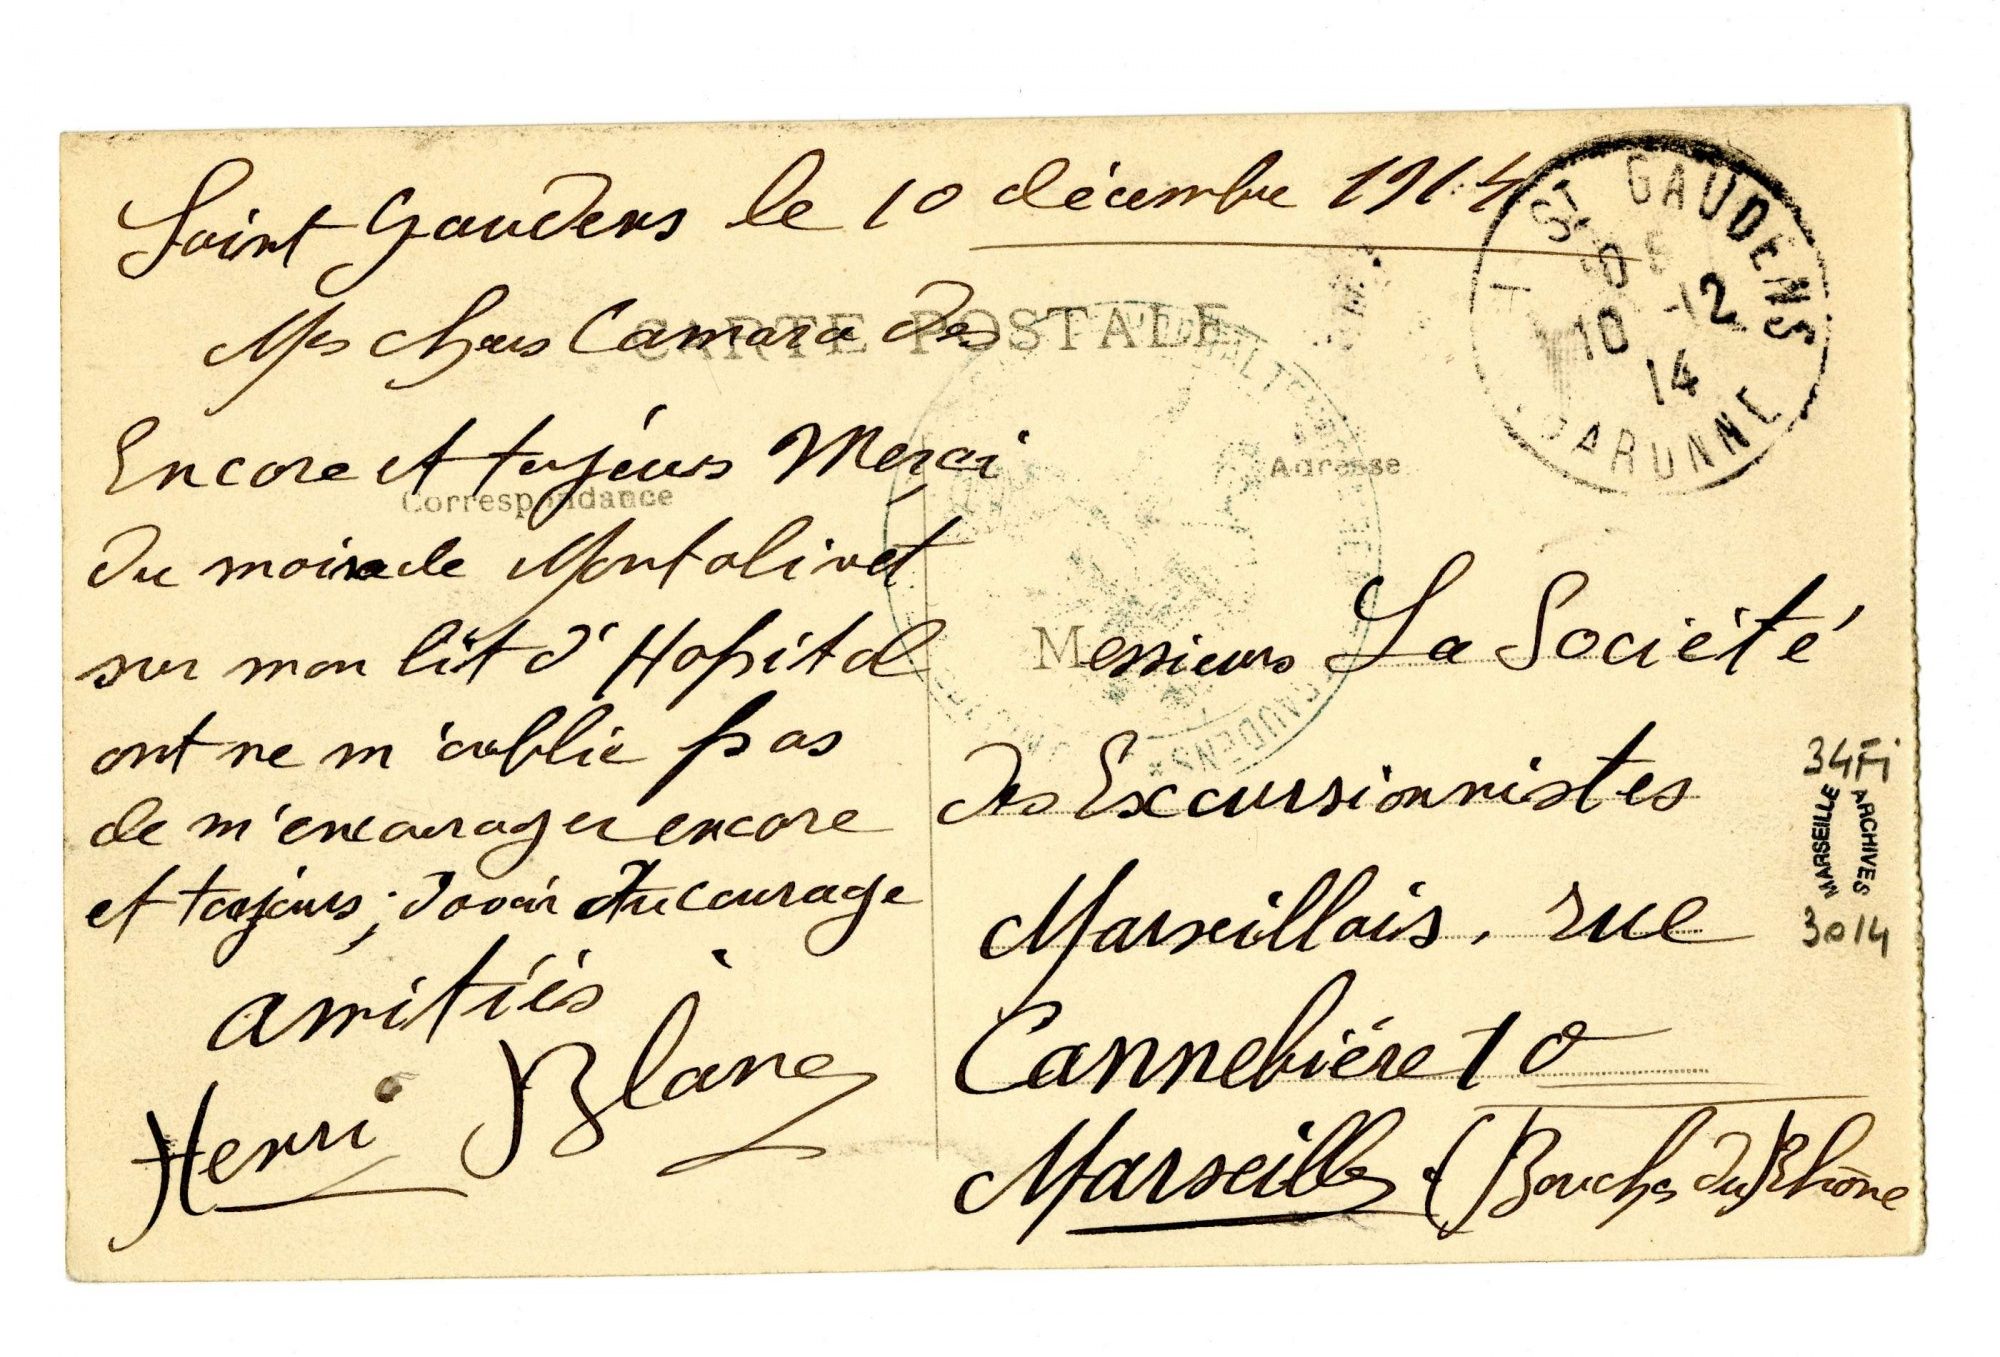 Saint Gaudens le 10 décembre 1914
Mes chers Camarades
CARTE POSTALE
Encore et toujours Merçi
Correspondance
du moins de Montolivet
sur mon lit d'Hopital
ont ne m'oublie pas
de m'encourager encore
et toujours; d'avoir du courage
amitiés
Henri Blanc
ST GAUDENS
10 -12
14
GARONNE
Adresse
Messieurs La Société
des Excursionnistes
Marseillais, rue
Cannebière 10
Marseille (Bouches du Rhône
GAUDENS
34Fi
MARSEILLE
ARCHIVES
3014